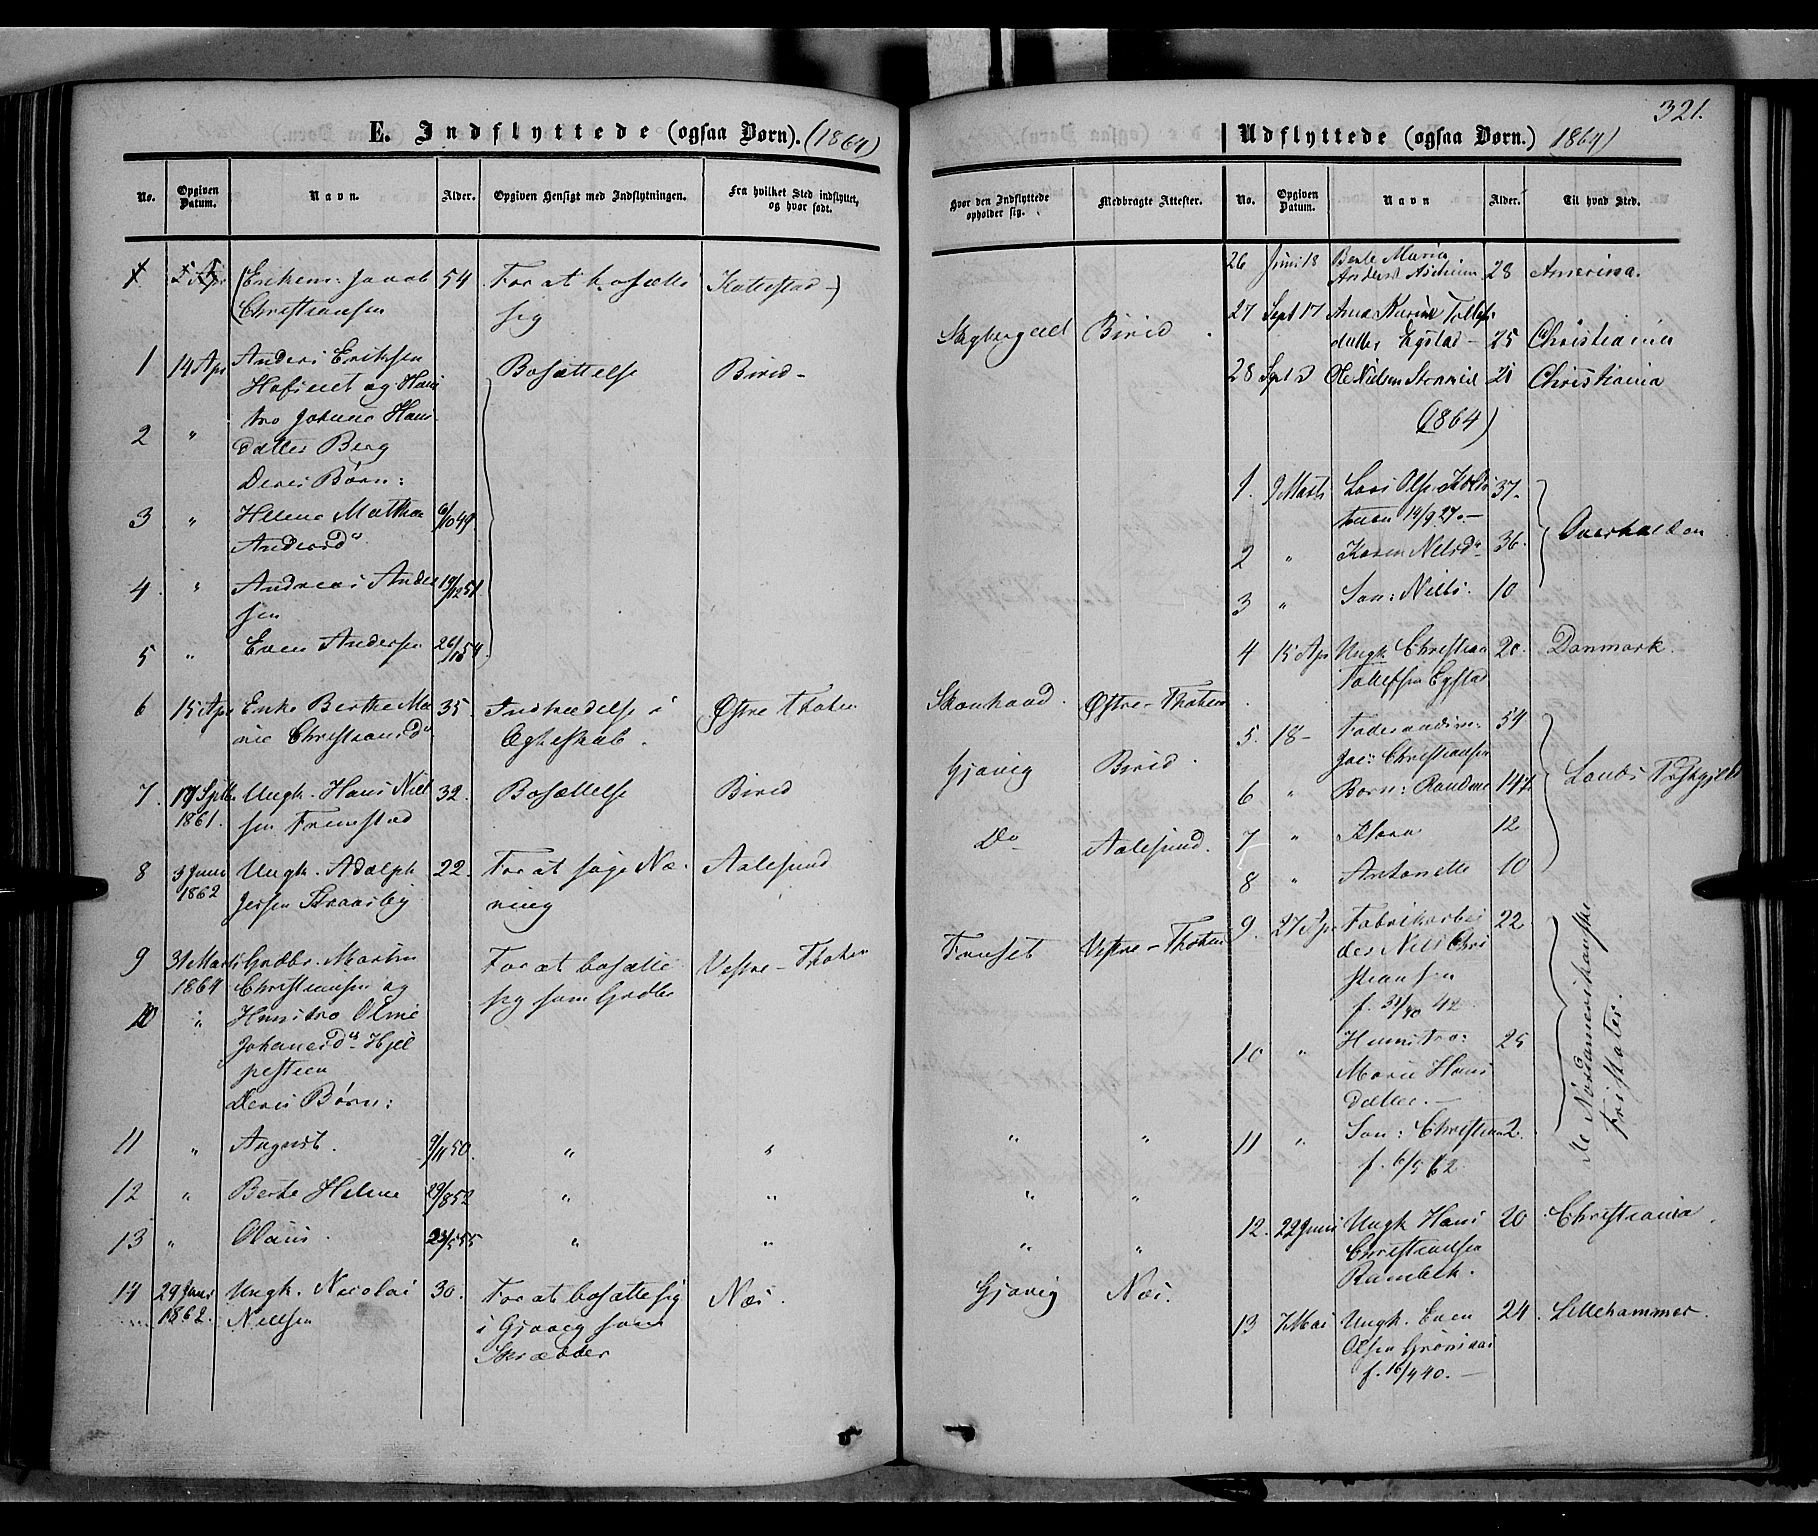 321.
E. Indflyttede (ogsaa Børn). (1864)
No.
Opgiven Datum.
Navn.
Alder.
Opgiven Hensigt med Indflytningen.
Fra hvilket Sted indflyttet, og hvor født.
Hvor den Indflyttede opholder sig.
Medbragte Attester.
1 5 Apr (Enkem: Jacob 54 For at bosætte
Christiansen sig
1 14 Apr Anders Eriksen Bosættelse Birid - Birid
og
2 " tro Johanne Hans
datter Berg
Deres Børn:
3 " Helene Mathea 6/10 49
Andersd
4 " Andreas Ander 19/12 51
sen
5 " Even Andersen 26/10 54
6 15 Apr Enke Berthe Ma 35 Indtrædelse i Østre Thoten Østre-Thoten
rie Christiansd Egteskab.
7. 17 Septbr Ungk. Hans Niel 32. Bosættelse Birid Gjøvig Birid
1861. sen Fremstad
8 3 Juni Ungk. Adolph 22. For at søge Næ Aalesund Do Aalesund.
1862 Jessen ring
9 31 Marts Grdbr. Martin For at bosætte Vestre-Thoten Vestre-Thoten
1864 Christiansen og sig som Grdbr
10 " Hustru Oline
Johannesd Hjel
pesteen
Deres Børn:
11 " August. 9/11 50. " " " "
12 " Berte Helene 29/8 52 " " " "
13 " Olaus. 23/5 55 " " " "
14 29 Juni Ungk. Nicolai 30. For at bosætte sig Næs. Gjøvig Næs.
1862. Nielsen i Gjøvig som
Skrædder
Udflyttede (ogsaa Børn.) 1864)
No.
Opgiven Datum.
Navn
Alder.
Til hvad Sted.
26 Juni 18 Berte Maria
Andersd 28 Amerika.
27 Sept 17 Ana Karine Tollefs
datter Egstad - 25 Christiania
28 Sept Ole Nielsen 21 Christiania
(1864)
1. 9 Marts Lars Olsen 37.
14/9 27. - Overhalden
2 " Karen Nielsd 36.
3 " Søn: Niels. 10
4 15 Apr Ungk. Christian 20. Danmark.
Tollefsen Egstad
5. 18 - 54
Jac: Christiansen Lands Præstgjeld
6 " Børn: Randine 14
7 " Klara 12
8 " Antonette 10
9. 27 Apr Fabrikarbei 22
der Nils Chri
stiansen
f. 42
10 " Hustru: 25
Marie Hans
datter. -
11 " Søn: Christian 2.
f. 6/5 62
De Nordamerikanske
Fristater.
12. 22 Juni Ungk Hans 20 Christiania
Christiansen
Rambek.
13 7 Mai Ungk. Even 24. Lillehammer.
Olsen
f. 16/4 40. -